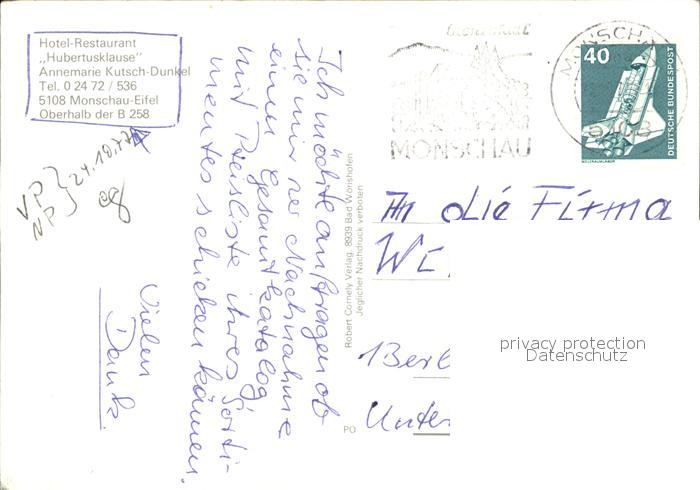 Hotel-Restaurant
„Hubertusklause"
Annemarie Kutsch-Dunkel
Tel. 0 24 72 / 536
5108 Monschau-Eifel
Oberhalb der B 258
VP } 24.10.77
NP
Ich möchte anfragen ob
sie mir per Nachnahme
einen Gesamtkatalog
mit Preisliste ihres Sorti-
mentes schicken können.
Vielen
Dank.
Robert Cornely Verlag, 8939 Bad Wörishofen
Jeglicher Nachdruck verboten
MONSCHAU
MONSCHA
40
DEUTSCHE BUNDESPOST
WELTRAUMLABOR
An die Firma
1 Berl
Unter
PO
privacy protection
Datenschutz